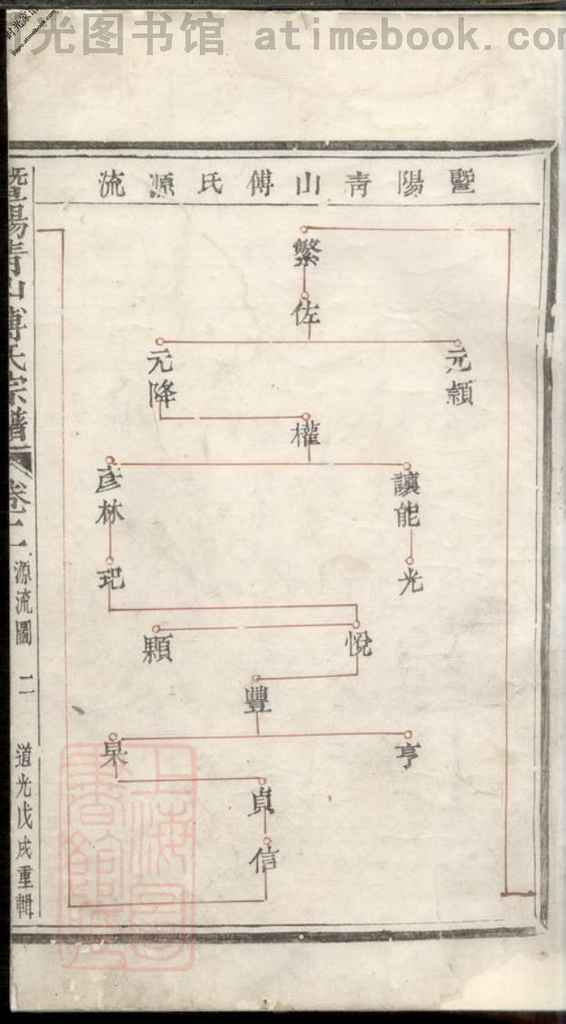 光图书馆 atimebook.com
暨陽靑山傅氏源流
繁
佐
元穎
元降
權
讓能
彥林
光
玘
悅
顆
豐
亨
杲
貞
信
暨陽靑山傅氏宗譜
卷二
源流圖
二
道光戊戌重輯